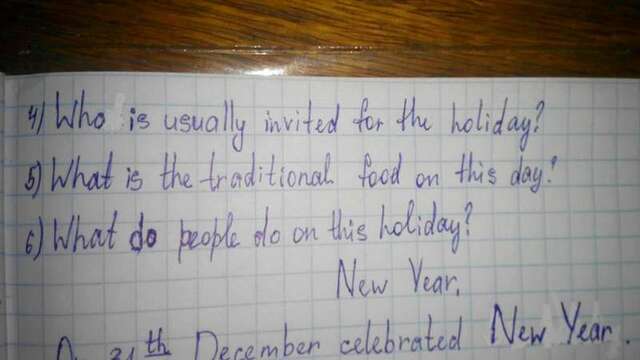 4) Who is usually invited for the holiday?
5) What is the traditional food on this day?
6) What do people do on this holiday?
New Year.
31th December celebrated New Year.